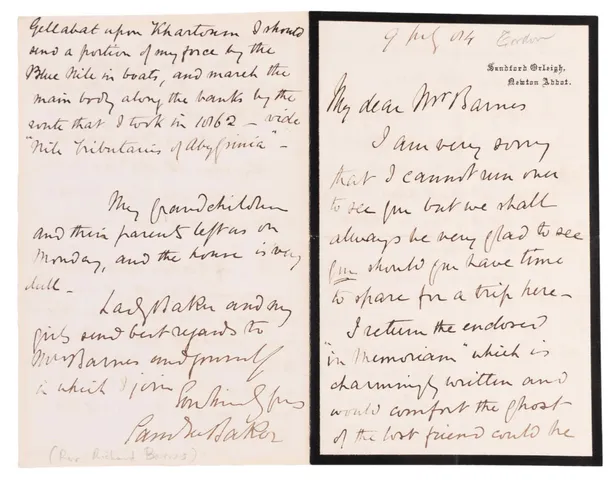 Gellabat upon Khartoum I should
send a portion of my force by the
Blue Nile in boats, and march the
main body along the banks by the
route that I took in 1862 – vide
"Nile Tributaries of Abyssinia" –
My grandchildren
and their parents left us on
Monday, and the house is very
dull –
Lady Baker and my
girls send best regards to
Mrs Barnes and yourself
in which I join
Saml W Baker
(Rev. Richard Barnes)
9 July 84
Gordon
Sandford Orleigh,
Newton Abbot.
My dear Mr Barnes
I am very sorry
that I cannot run over
to see you but we shall
always be very glad to see
you should you have time
to spare for a trip here –
I return the enclosed
"in Memoriam" which is
charmingly written and
would comfort the ghost
of the lost friend could he